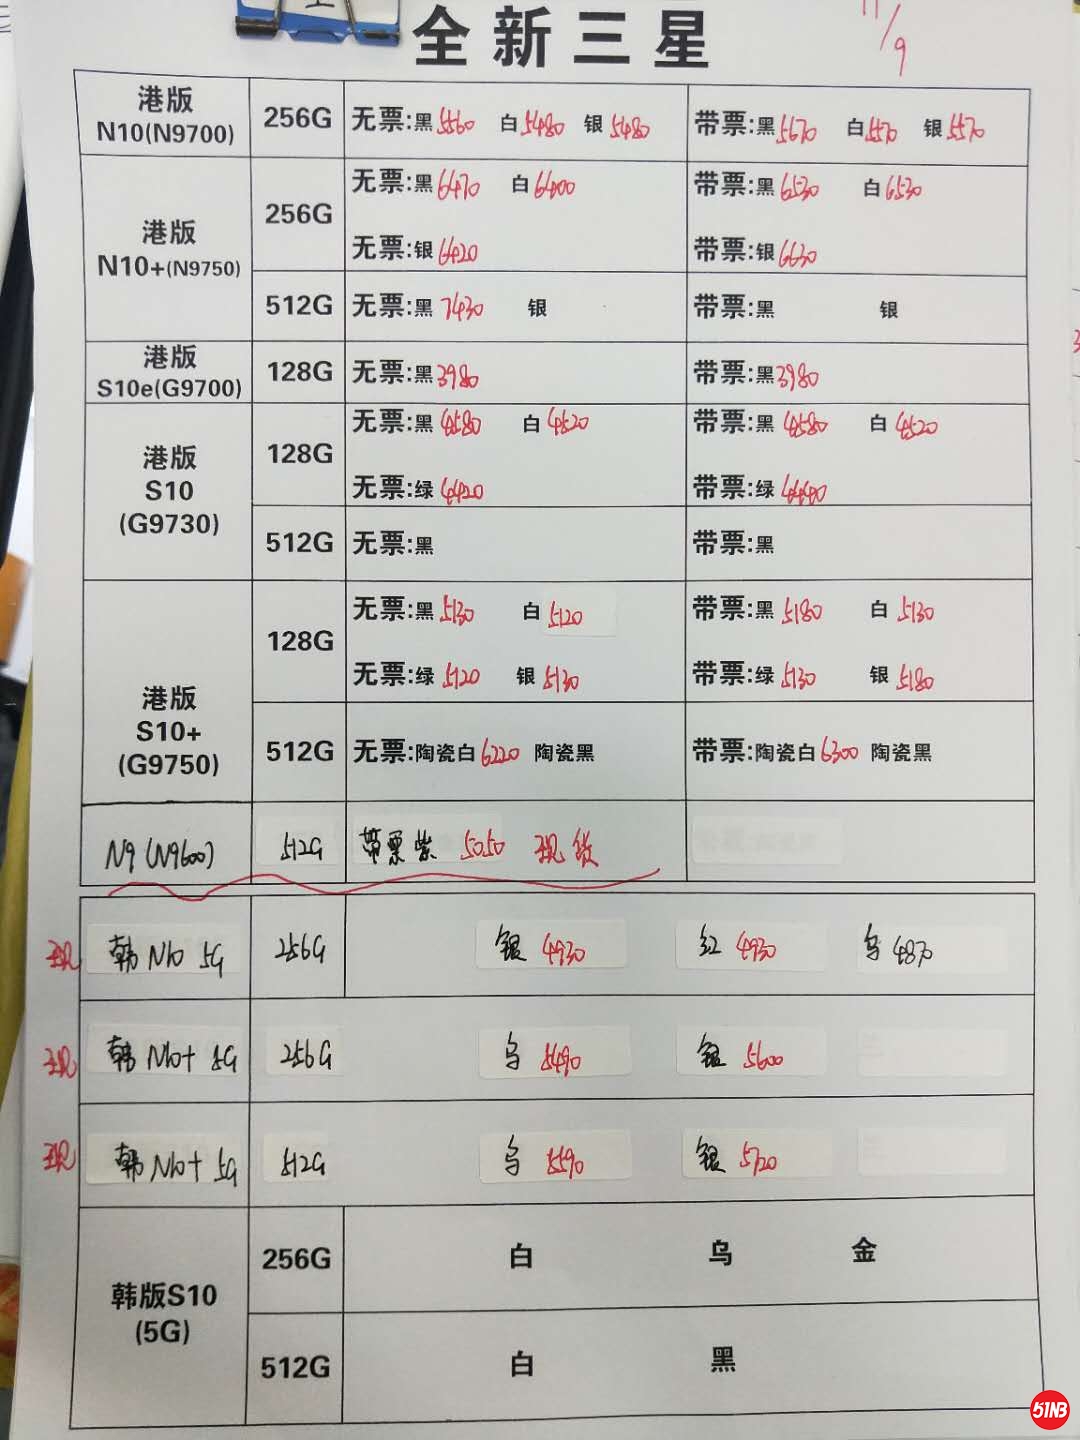 全新三星
11/9
港版
N10(N9700)
256G
无票:黑5560 白5480 银5480
带票:黑5670 白5570 银5570
港版
N10+(N9750)
256G
无票:黑6470 白6400
带票:黑6530 白6530
无票:银6420
带票:银6630
512G
无票:黑 7430 银
带票:黑 银
港版
S10e(G9700)
128G
无票:黑3980
带票:黑3980
港版
S10
(G9730)
128G
无票:黑 4580 白4520
带票:黑 4580 白 4520
无票:绿 4420
带票:绿 4440
512G
无票:黑
带票:黑
港版
S10+
(G9750)
128G
无票:黑 5130 白5120
带票:黑 5180 白 5130
无票:绿 5120 银 5130
带票:绿 5130 银 5180
512G
无票:陶瓷白6220 陶瓷黑
带票:陶瓷白6300 陶瓷黑
N9(N9600) 512G 带票紫 5050 现货
现 韩 N10 5G 256G 银 4930 红 4930 乌 4870
现 韩 N10+ 5G 256G 乌 5490 银 5600
现 韩 N10+ 5G 512G 乌 5590 银 5720
韩版S10
(5G)
256G 白 乌 金
512G 白 黑
51NB